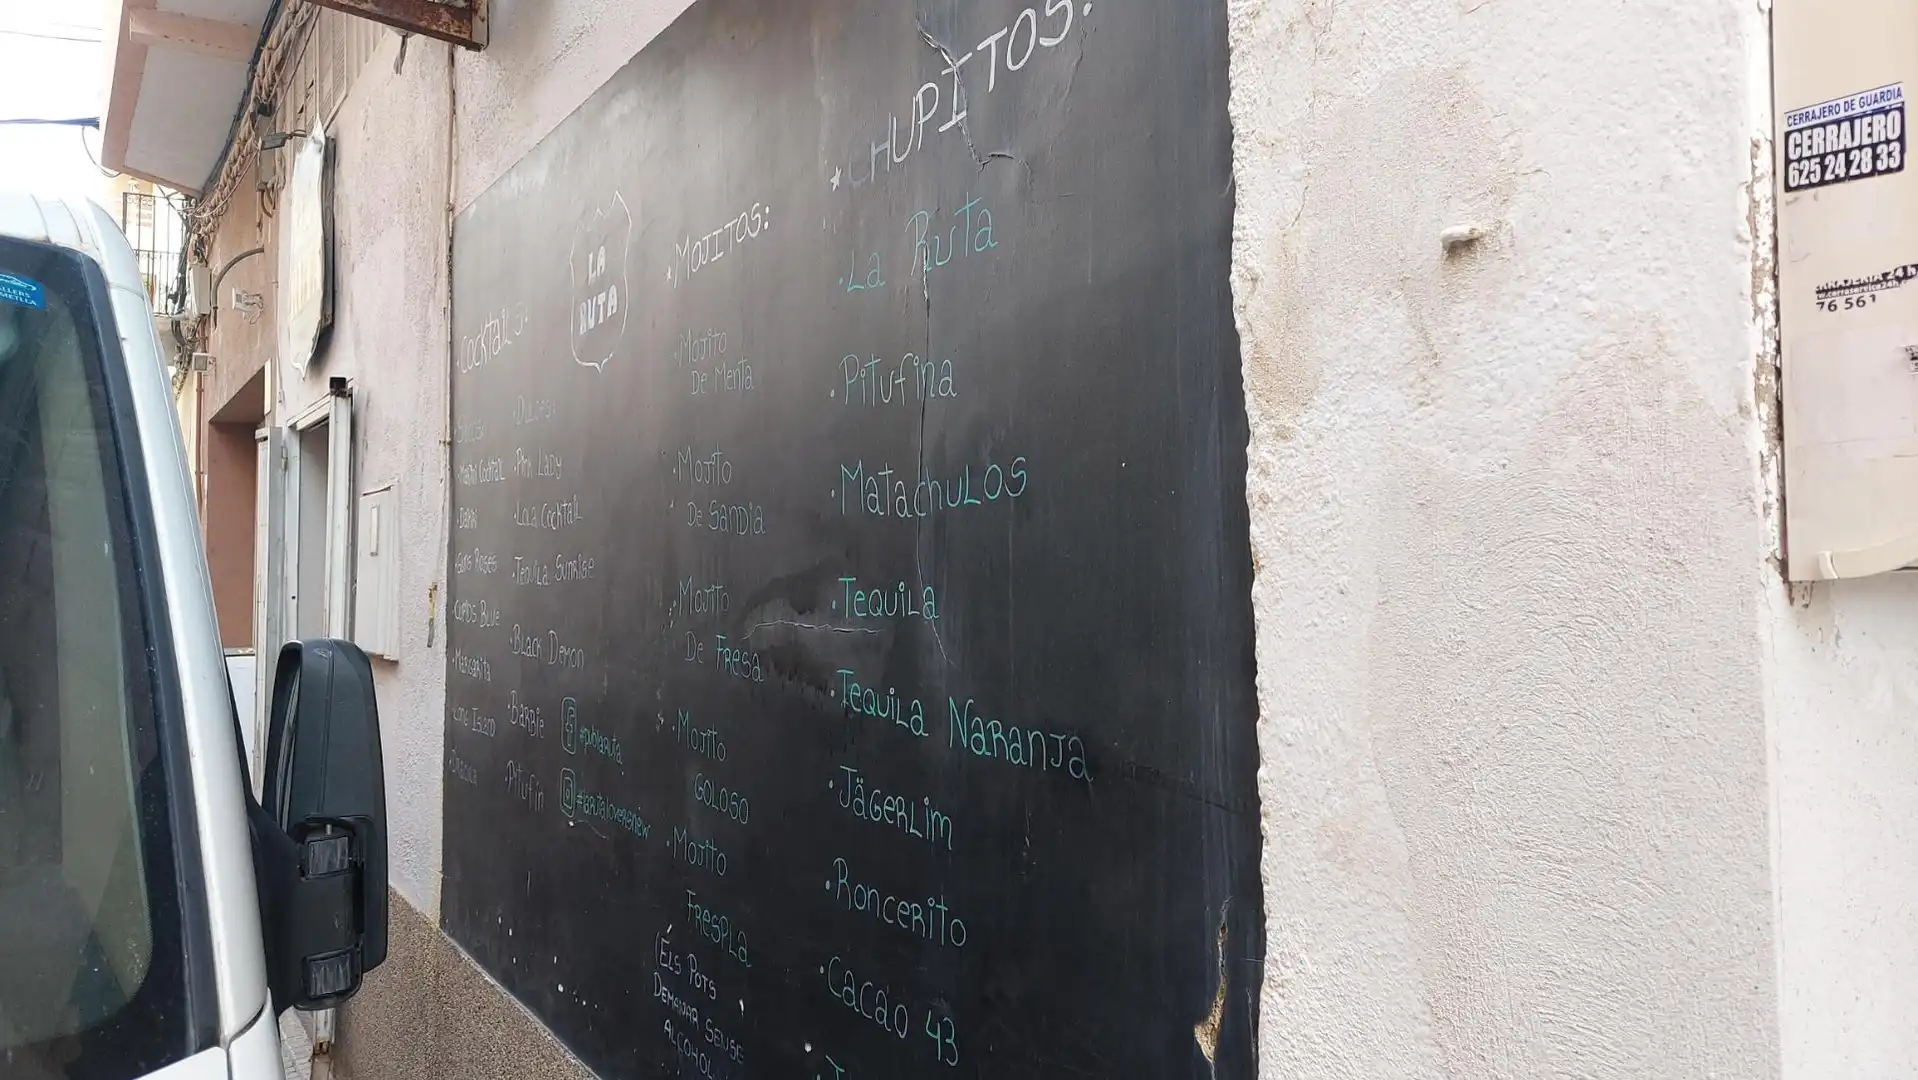 ·Cocktails:
·Martini Cocktail
·Daikiri
·Guns Roses
·Cupids Blue
·Margarita
·Long Island
·Pink Lady
·Lola Cocktail
·Tequila Sunrise
·Black Demon
·Barbie
·Pitufin
LA
RUTA
#publaruta
#larutaloversnew
*MOJITOS:
·Mojito
De Menta
·Mojito
De Sandia
·Mojito
De Fresa
·Mojito
GOLOSO
·Mojito
FRESPLA
(ELS POTS
DEMANAR SENSE
ALCOHOL
*CHUPITOS:
·La Ruta
·Pitufina
·MatachuLos
·TequiLa
·TequiLa NaranJa
·JägerLim
·Roncerito
·Cacao 43
CERRAJERO DE GUARDIA
CERRAJERO
625 24 28 33
76 561